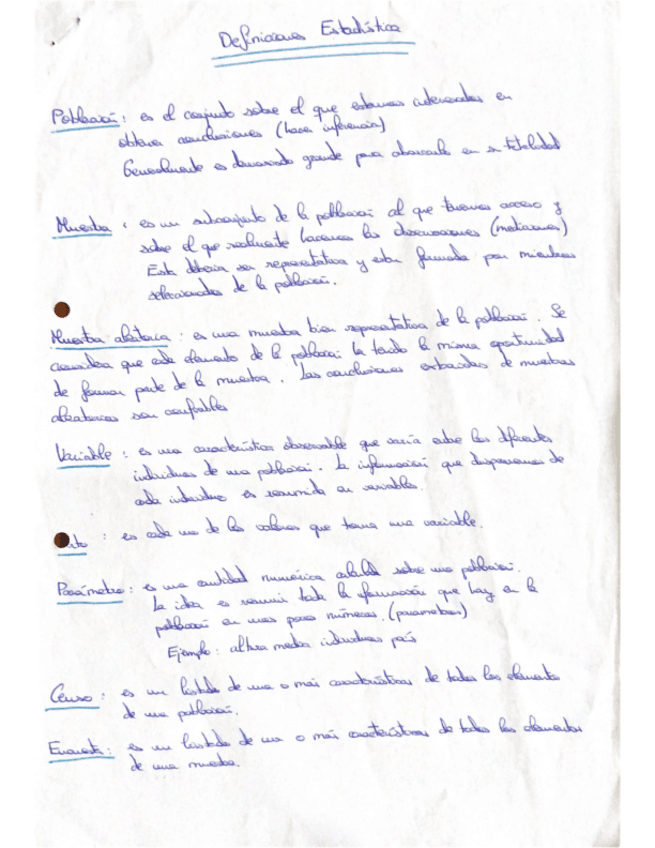 Definiciones Estadística
Población: es el conjunto sobre el que estamos interesados en
obtener conclusiones (hacer inferencia)
Generalmente es demasiado grande para abarcarlo en su totalidad
Muestra: es un subconjunto de la población al que tenemos acceso y
sobre el que realmente hacemos las observaciones (mediciones)
Esta debería ser representativa y estar formada por miembros
seleccionados de la población.
Muestra aleatoria: es una muestra bien representativa de la población. Se
considera que cada elemento de la población ha tenido la misma oportunidad
de formar parte de la muestra. Las conclusiones extraídas de muestras
aleatorias son confiables
Variable: es una característica observable que varía entre los diferentes
individuos de una población. La información que disponemos de
cada individuo es resumida en variables.
: es cada uno de los valores que toma una variable.
Parámetro: es una cantidad numérica calculada sobre una población.
La idea es resumir toda la información que hay en la
población en unos pocos números. (parámetros)
Ejemplo: altura media individuos país
Censo: es un listado de una o más características de todos los elementos
de una población.
Encuesta: es un listado de una o más características de todos los elementos
de una muestra.